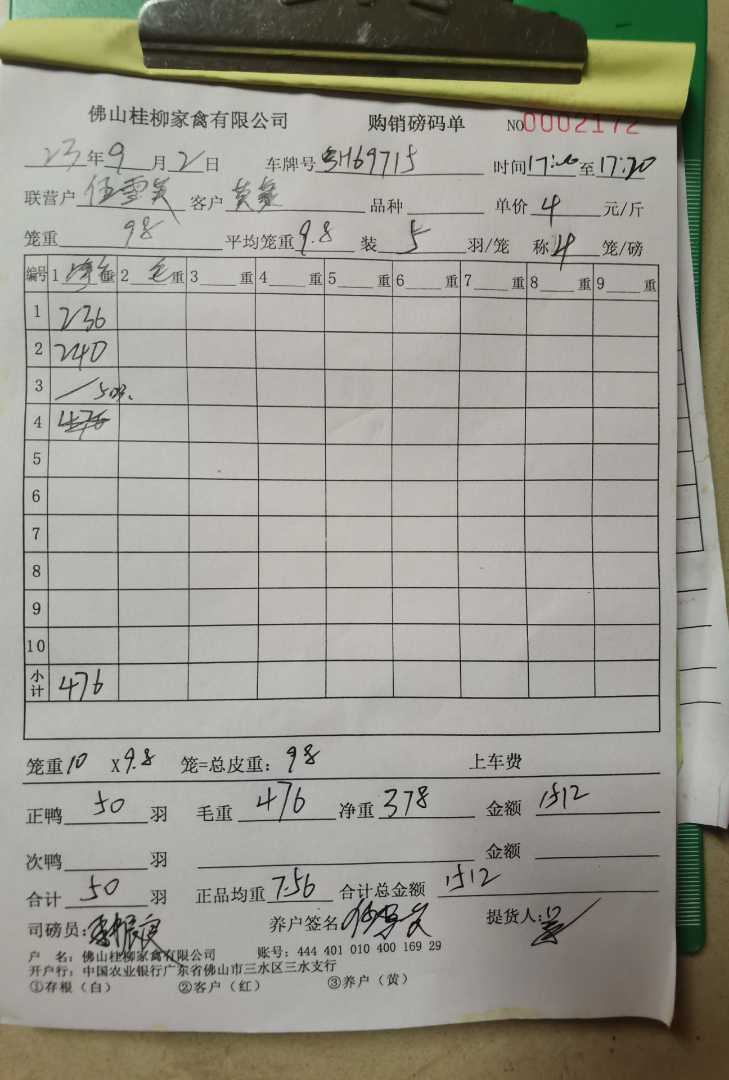 佛山桂柳家禽有限公司 购销磅码单 NO 0002172
23年9月2日 车牌号 粤H69715 时间17: 至17:20
联营户 伍雪 客户 品种 单价 4 元/斤
笼重 98 平均笼重 9.8 装 5 羽/笼 称 4 笼/磅
编号 1 重 2 毛 重 3 重 4 重 5 重 6 重 7 重 8 重 9 重
1 236
2 240
3 / 50羽.
4 476
5
6
7
8
9
10
小计 476
笼重 10 X 9.8 笼=总皮重: 98 上车费
正鸭 50 羽 毛重 476 净重 378 金额 1512
次鸭 羽 金额
合计 50 羽 正品均重 7.56 合计总金额 1512
司磅员: 养户签名 提货人:
户 名: 佛山桂柳家禽有限公司 账号: 444 401 010 400 169 29
开户行: 中国农业银行广东省佛山市三水区三水支行
①存根（白） ②客户（红） ③养户（黄）